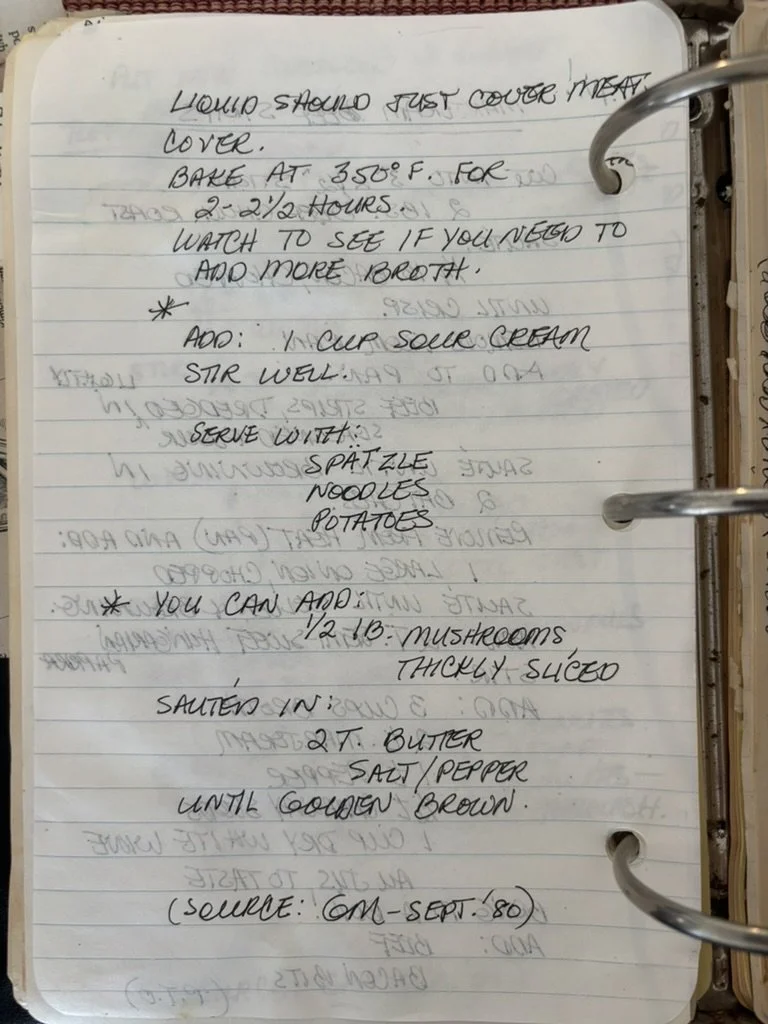 LIQUID SHOULD JUST COVER MEAT.
COVER.
BAKE AT 350° F. FOR
2 - 2 1/2 HOURS.
WATCH TO SEE IF YOU NEED TO
ADD MORE BROTH.
*
ADD: 1 CUP SOUR CREAM
STIR WELL.
SERVE WITH:
SPÄTZLE
NOODLES
POTATOES
* YOU CAN ADD:
1/2 lB. MUSHROOMS,
THICKLY SLICED
SAUTÉD IN:
2 T. BUTTER
SALT/PEPPER
UNTIL GOLDEN BROWN.
(SOURCE: GM - SEPT. '80)